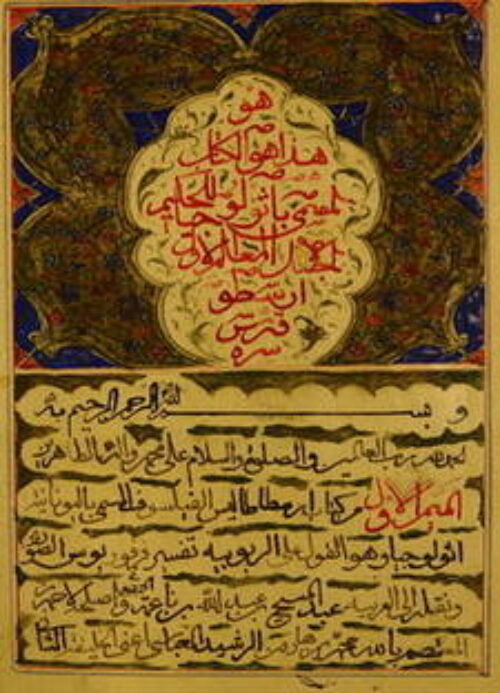 هو
هذا هو الكتاب
المسمى باثولوجيا للحكيم
الجليل المعلم الاول
ارسطو
قدس
سره
بسم الله الرحمن الرحيم
الحمد لله رب العالمين والصلوة والسلام على محمد وآله الطاهرين
الميمر الاول من كتاب ارسطاطاليس الفيلسوف المسمى باليونانية
اثولوجيا وهو القول على الربوبية تفسير فرفوريوس الصوري
ونقله الى العربية عبد المسيح بن عبد الله بن ناعمة الحمصي واصلحه لاحمد
المعتصم بالله بن هارون الرشيد العباسي اعني الخليفة الثامن